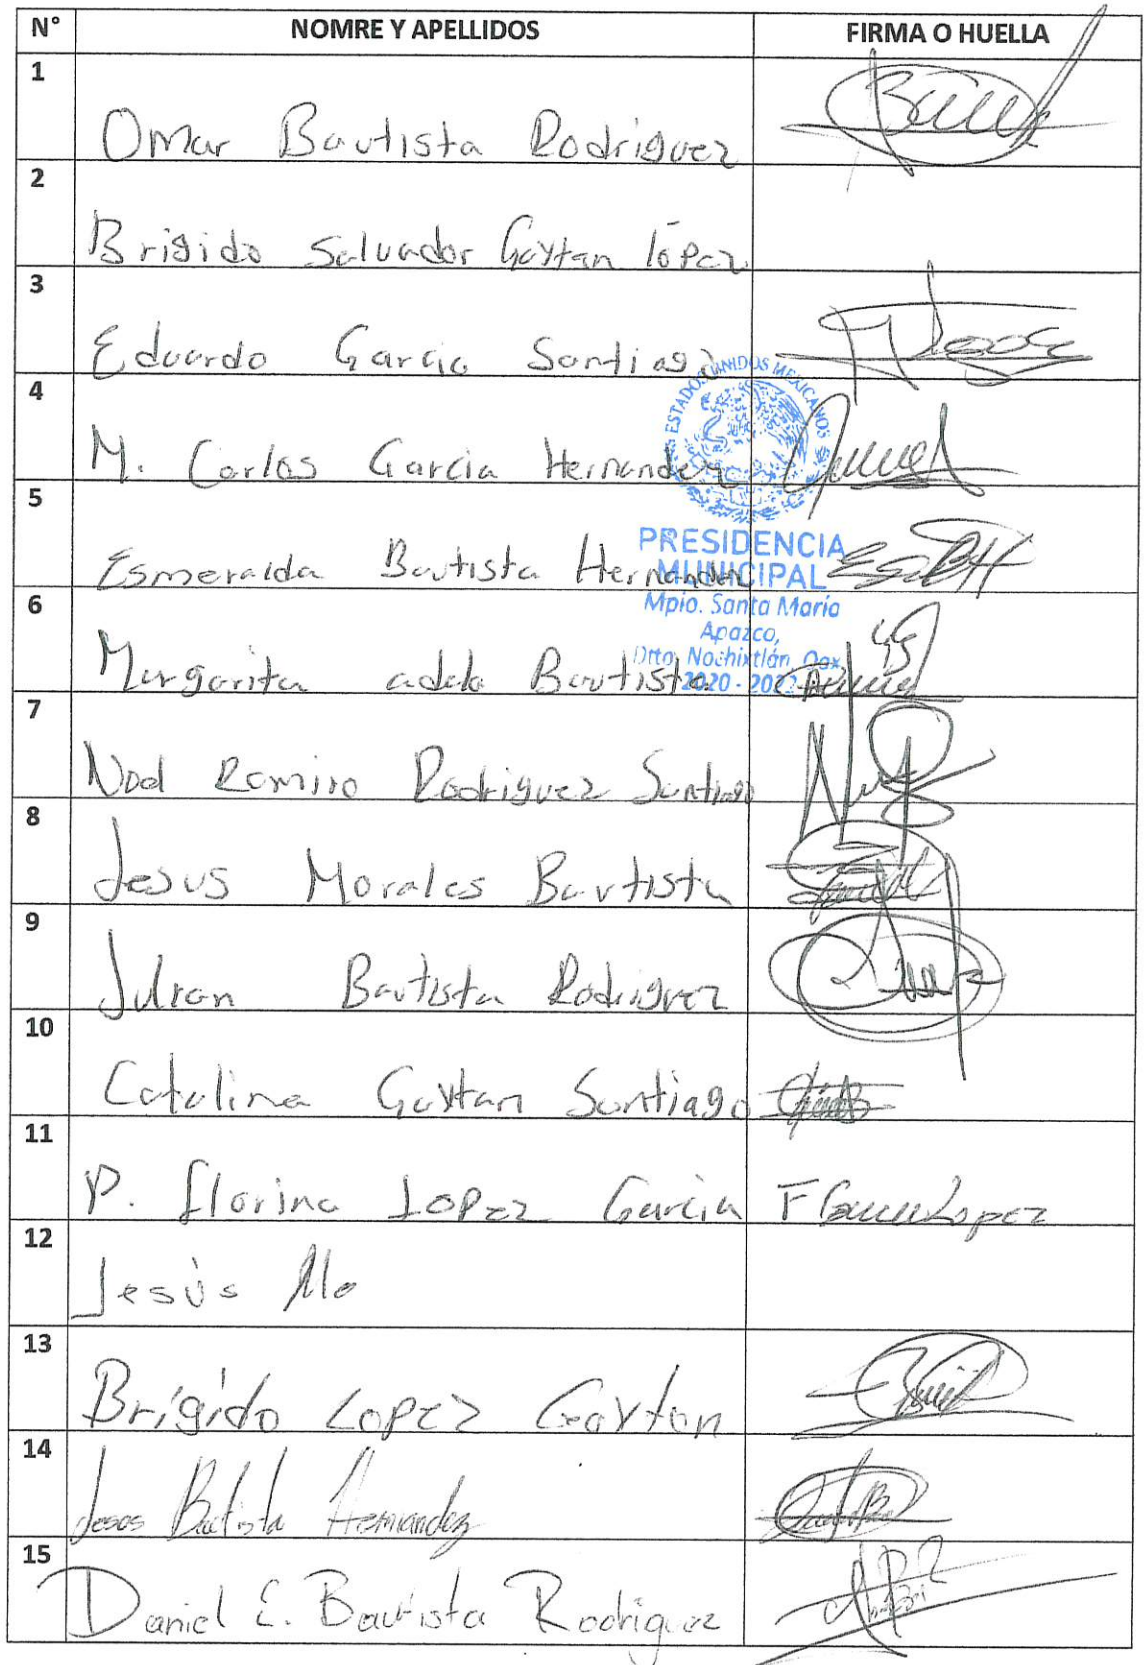 N° NOMRE Y APELLIDOS FIRMA O HUELLA
1 Omar Bautista Rodriguez
2 Brigido Salvador Gaytan lópez
3 Eduardo Garcia Santiago
4 M. Carlos Garcia Hernandez
5 Esmeralda Bautista Hernandez
6 Margarita adela Bautista
7 Noel Ramiro Rodriguez Santiago
8 Jesus Morales Bautista
9 Julian Bautista Rodriguez
10 Catalina Gaytan Santiago
11 P. florina Lopez Garcia Lopez
12 Jesús Mo
13 Brígido Lopez Gaytan
14 Jesus Bautista Hernandez
15 Daniel E. Bautista Rodriguez
ESTADOS UNIDOS MEXICANOS
PRESIDENCIA
MUNICIPAL
Mpio. Santa María
Apazco,
Dtto. Nochixtlán, Oax.
2020 - 2022